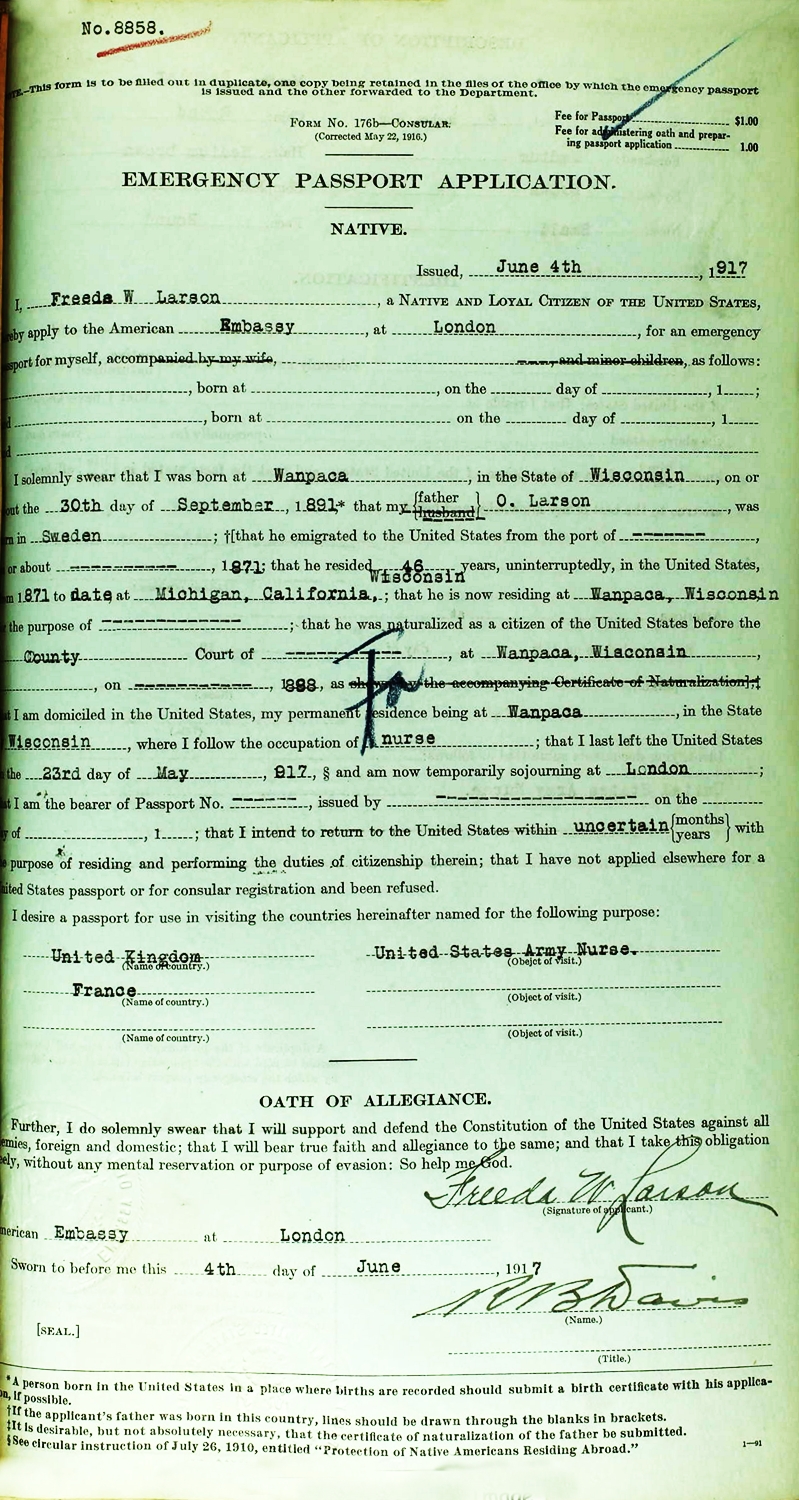 No. 8858.
—This form is to be filled out in duplicate, one copy being retained in the files of the office by which the emergency passport
is issued and the other forwarded to the Department.
Form No. 176b—Consular.
(Corrected May 22, 1916.)
Fee for Passport $1.00
Fee for administering oath and prepar-
ing passport application 1.00
EMERGENCY PASSPORT APPLICATION.
NATIVE.
Issued, June 4th, 1917
I, Freeda W Larson, a Native and Loyal Citizen of the United States,
eby apply to the American Embassy, at London, for an emergency
sport for myself, accompanied by my wife, and minor children, as follows:
, born at , on the day of , 1 ;
, born at on the day of , 1
d
I solemnly swear that I was born at Wanpaca, in the State of Wisconsin, on or
out the 30th day of September, 1891* that my {father husband} O. Larson, was
n in Sweden; †[that he emigrated to the United States from the port of --------,
or about --------------, 1871; that he resided 46 years, uninterruptedly, in the United States,
Wisconsin
1871 to date at Michigan, California,; that he is now residing at Wanpaca, Wisconsin
the purpose of ----------------; that he was naturalized as a citizen of the United States before the
County Court of --------------, at Wanpaca, Wisconsin,
, on ------------, 1888, as shown by the accompanying Certificate of Naturalization];‡
t I am domiciled in the United States, my permanent residence being at Wanpaca, in the State
Wisconsin, where I follow the occupation of A nurse; that I last left the United States
the 23rd day of May, 917, § and am now temporarily sojourning at London;
t I am the bearer of Passport No. -------, issued by ------------------ on the
y of , 1 ; that I intend to return to the United States within uncertain {months years} with
purpose of residing and performing the duties of citizenship therein; that I have not applied elsewhere for a
ited States passport or for consular registration and been refused.
I desire a passport for use in visiting the countries hereinafter named for the following purpose:
United Kingdom United States Army Nurse.
(Name of country.) (Obejct of visit.)
France
(Name of country.) (Object of visit.)
(Name of country.) (Object of visit.)
OATH OF ALLEGIANCE.
Further, I do solemnly swear that I will support and defend the Constitution of the United States against all
emies, foreign and domestic; that I will bear true faith and allegiance to the same; and that I take this obligation
ely, without any mental reservation or purpose of evasion: So help me God.
Freeda W Larson
(Signature of applicant.)
merican Embassy at London
Sworn to before me this 4th day of June, 1917
R B Davis
(Name.)
[SEAL.]
(Title.)
*A person born in the United States in a place where births are recorded should submit a birth certificate with his applica-
n, if possible.
†If the applicant's father was born in this country, lines should be drawn through the blanks in brackets.
‡It is desirable, but not absolutely necessary, that the certificate of naturalization of the father be submitted.
§See circular instruction of July 26, 1910, entitled “Protection of Native Americans Residing Abroad.”
1—91